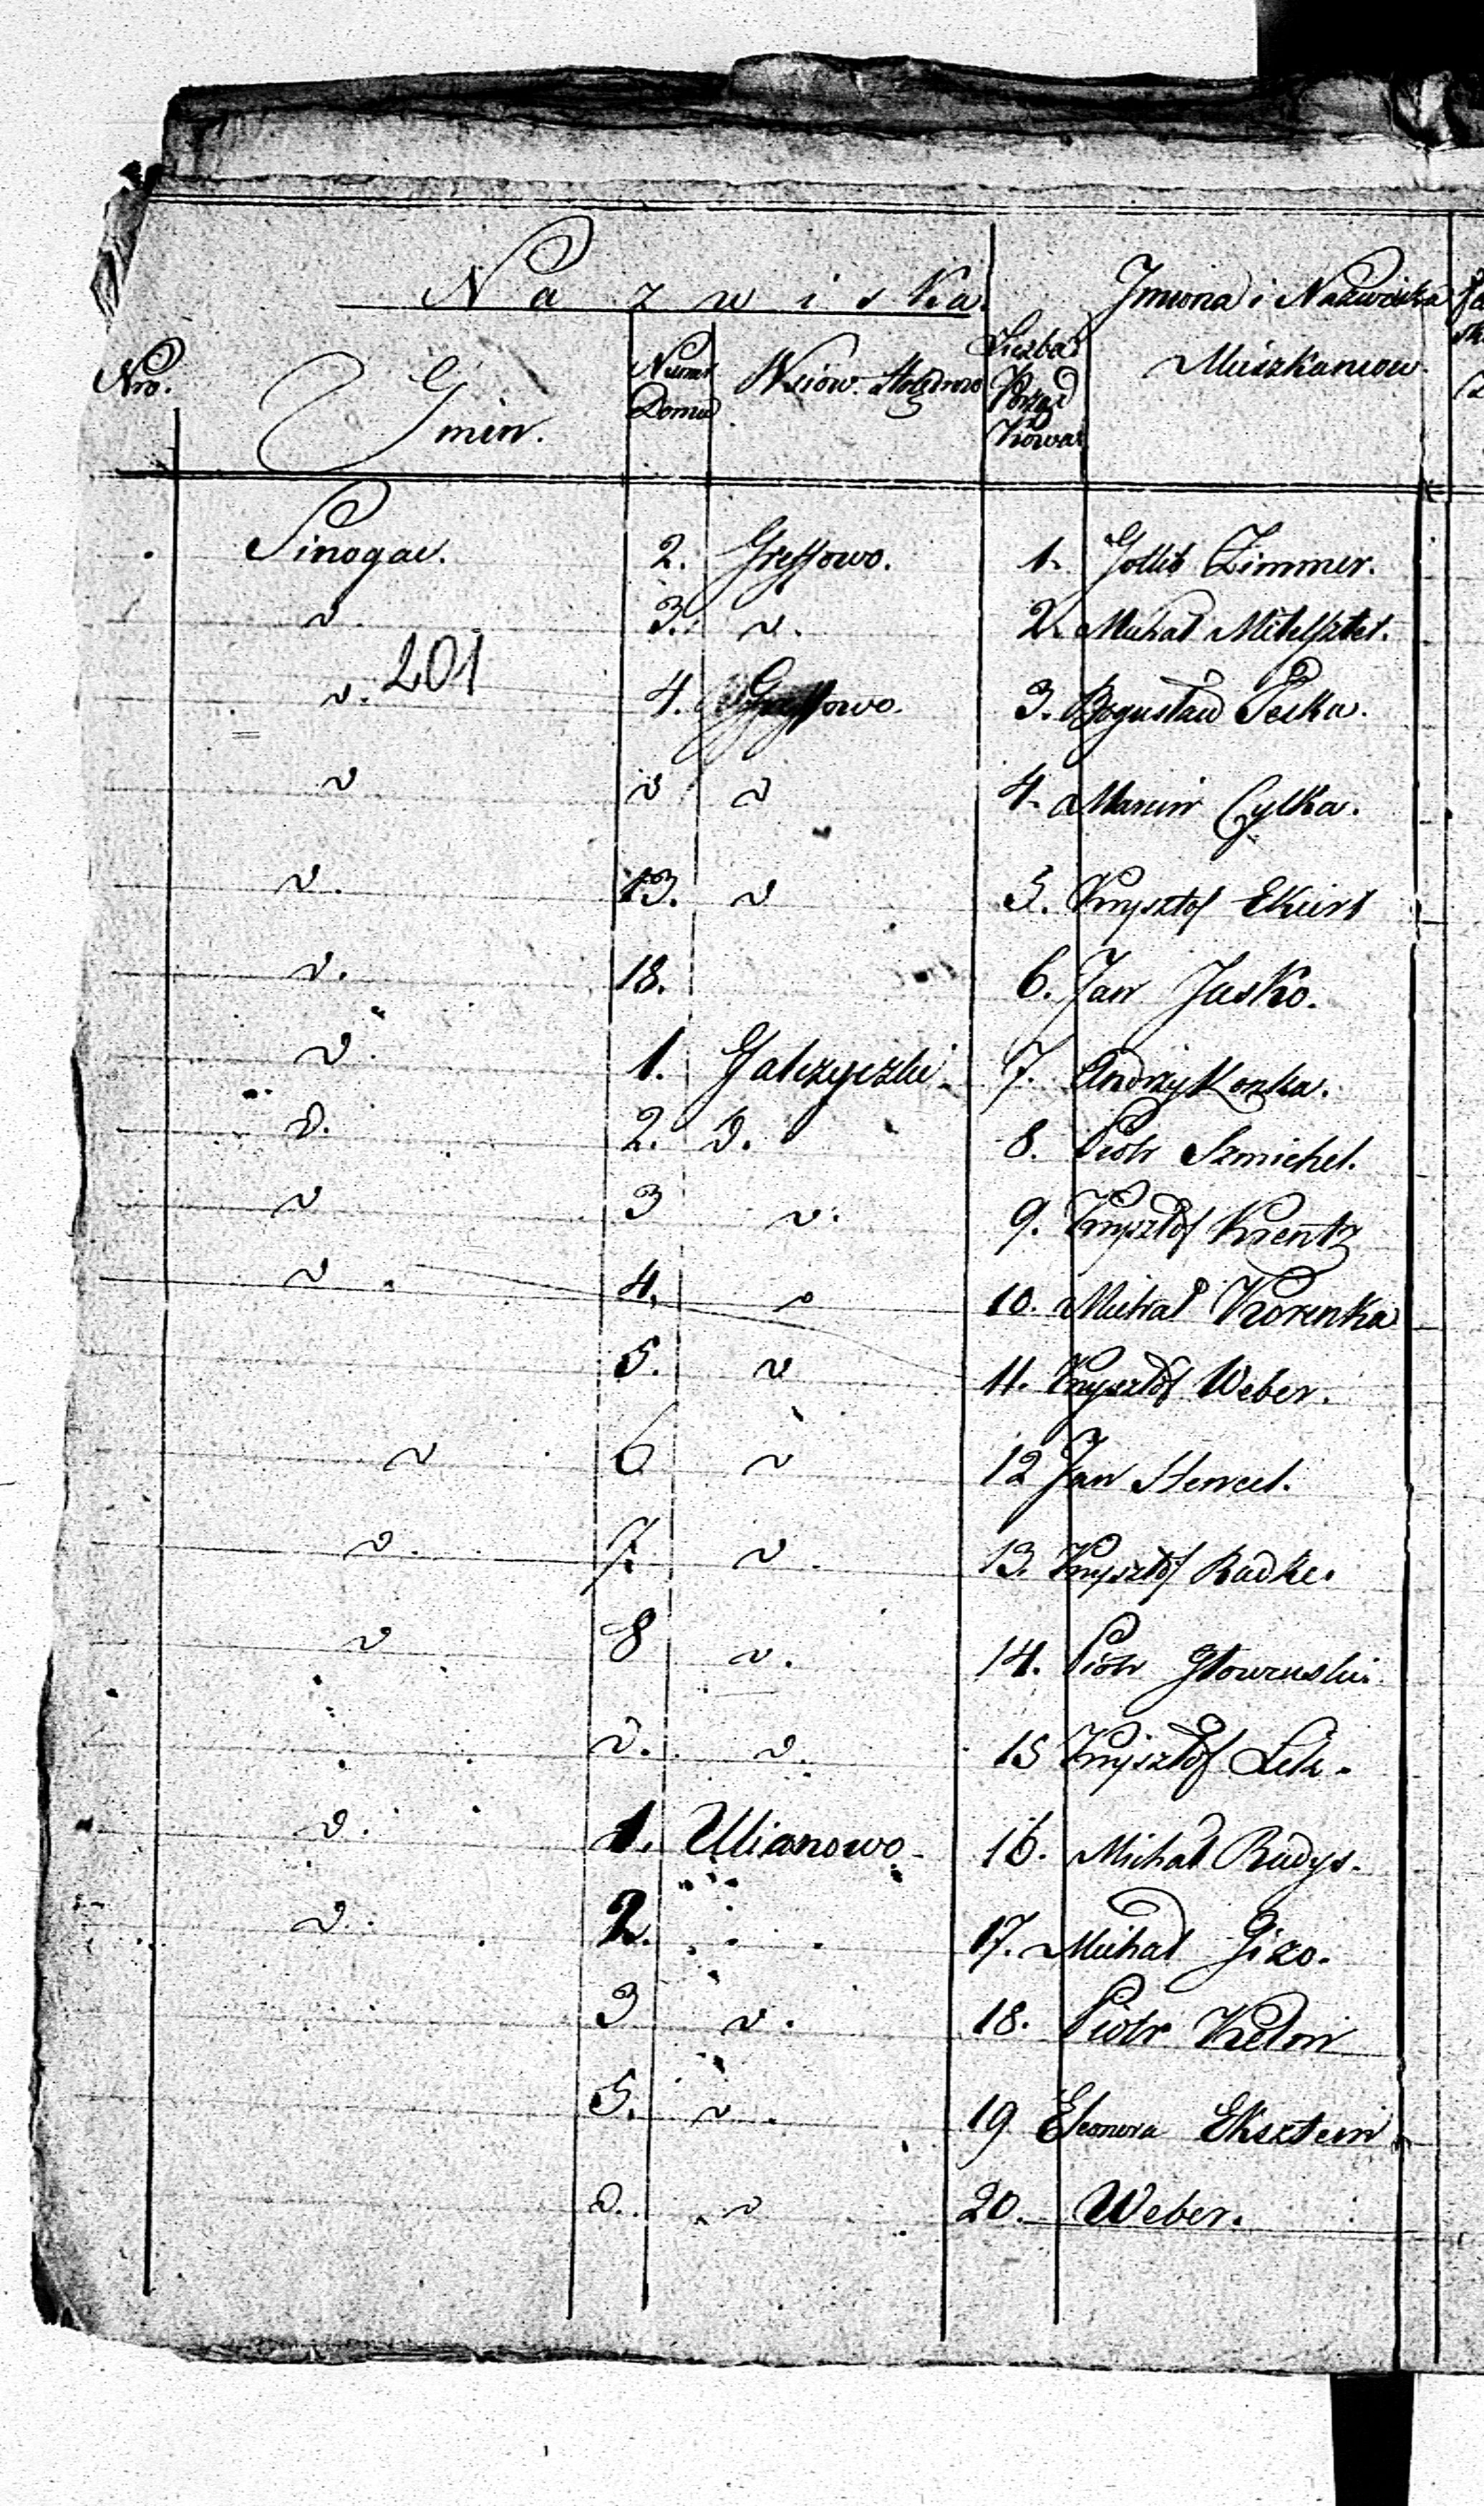 Nazwiska. Imiona i Nazwiska
Nro. Gmin. Numer Domu Wsiów. Liczba Porząd kowa Mieszkancow.
Sinogac. 2. Greffowo. 1. Gottlib Zimmer.
d. 3. d. 2. Michał Mitelsztet.
201
d. 4. 3. Bogusław Peska.
d d d 4. Marcin Cylka.
d. 13. d 5. Krysztof Ekiert
d. 18. 6. Jan Jasko.
d. 1. Gałczyczki 7. Andrzy Konka.
d. 2. d. 8. Piotr Szmichel.
d 3 d. 9. Krysztof Krentz
d. 4. d 10. Michał Korenka
5. d 11. Krysztof Weber.
d 6 d 12 Jan Hencel.
d. 7. d. 13. Krysztof Radke.
d 8 d. 14. Piotr Głowenski.
d. d. 15 Krysztof Lek.
d. 1. Ulianowo 16. Michał Rudys.
d. 2. 17. Michał Gizo.
3 d. 18. Piotr Kelm
5. d. 19 Eleonora Eksztein
d. d 20. Weber.